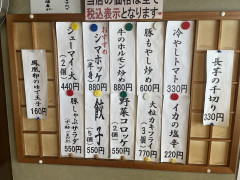 当店の価格は全て
税込表示となります
長芋の千切り
330円
冷やしトマト
330円
イカの塩辛
220円
豚もやし炒め
600円
大粒カキフライ
(3個)
770円
牛のホルモン炒め
880円
野菜コロッケ
(2個)
550円
おすすめ
シマホッケ
(半身)
880円
餃子
(5個)
550円
シューマイ・大
(2個)
440円
豚しゃぶサラダ
550円
鳳凰卵のゆで玉子
160円